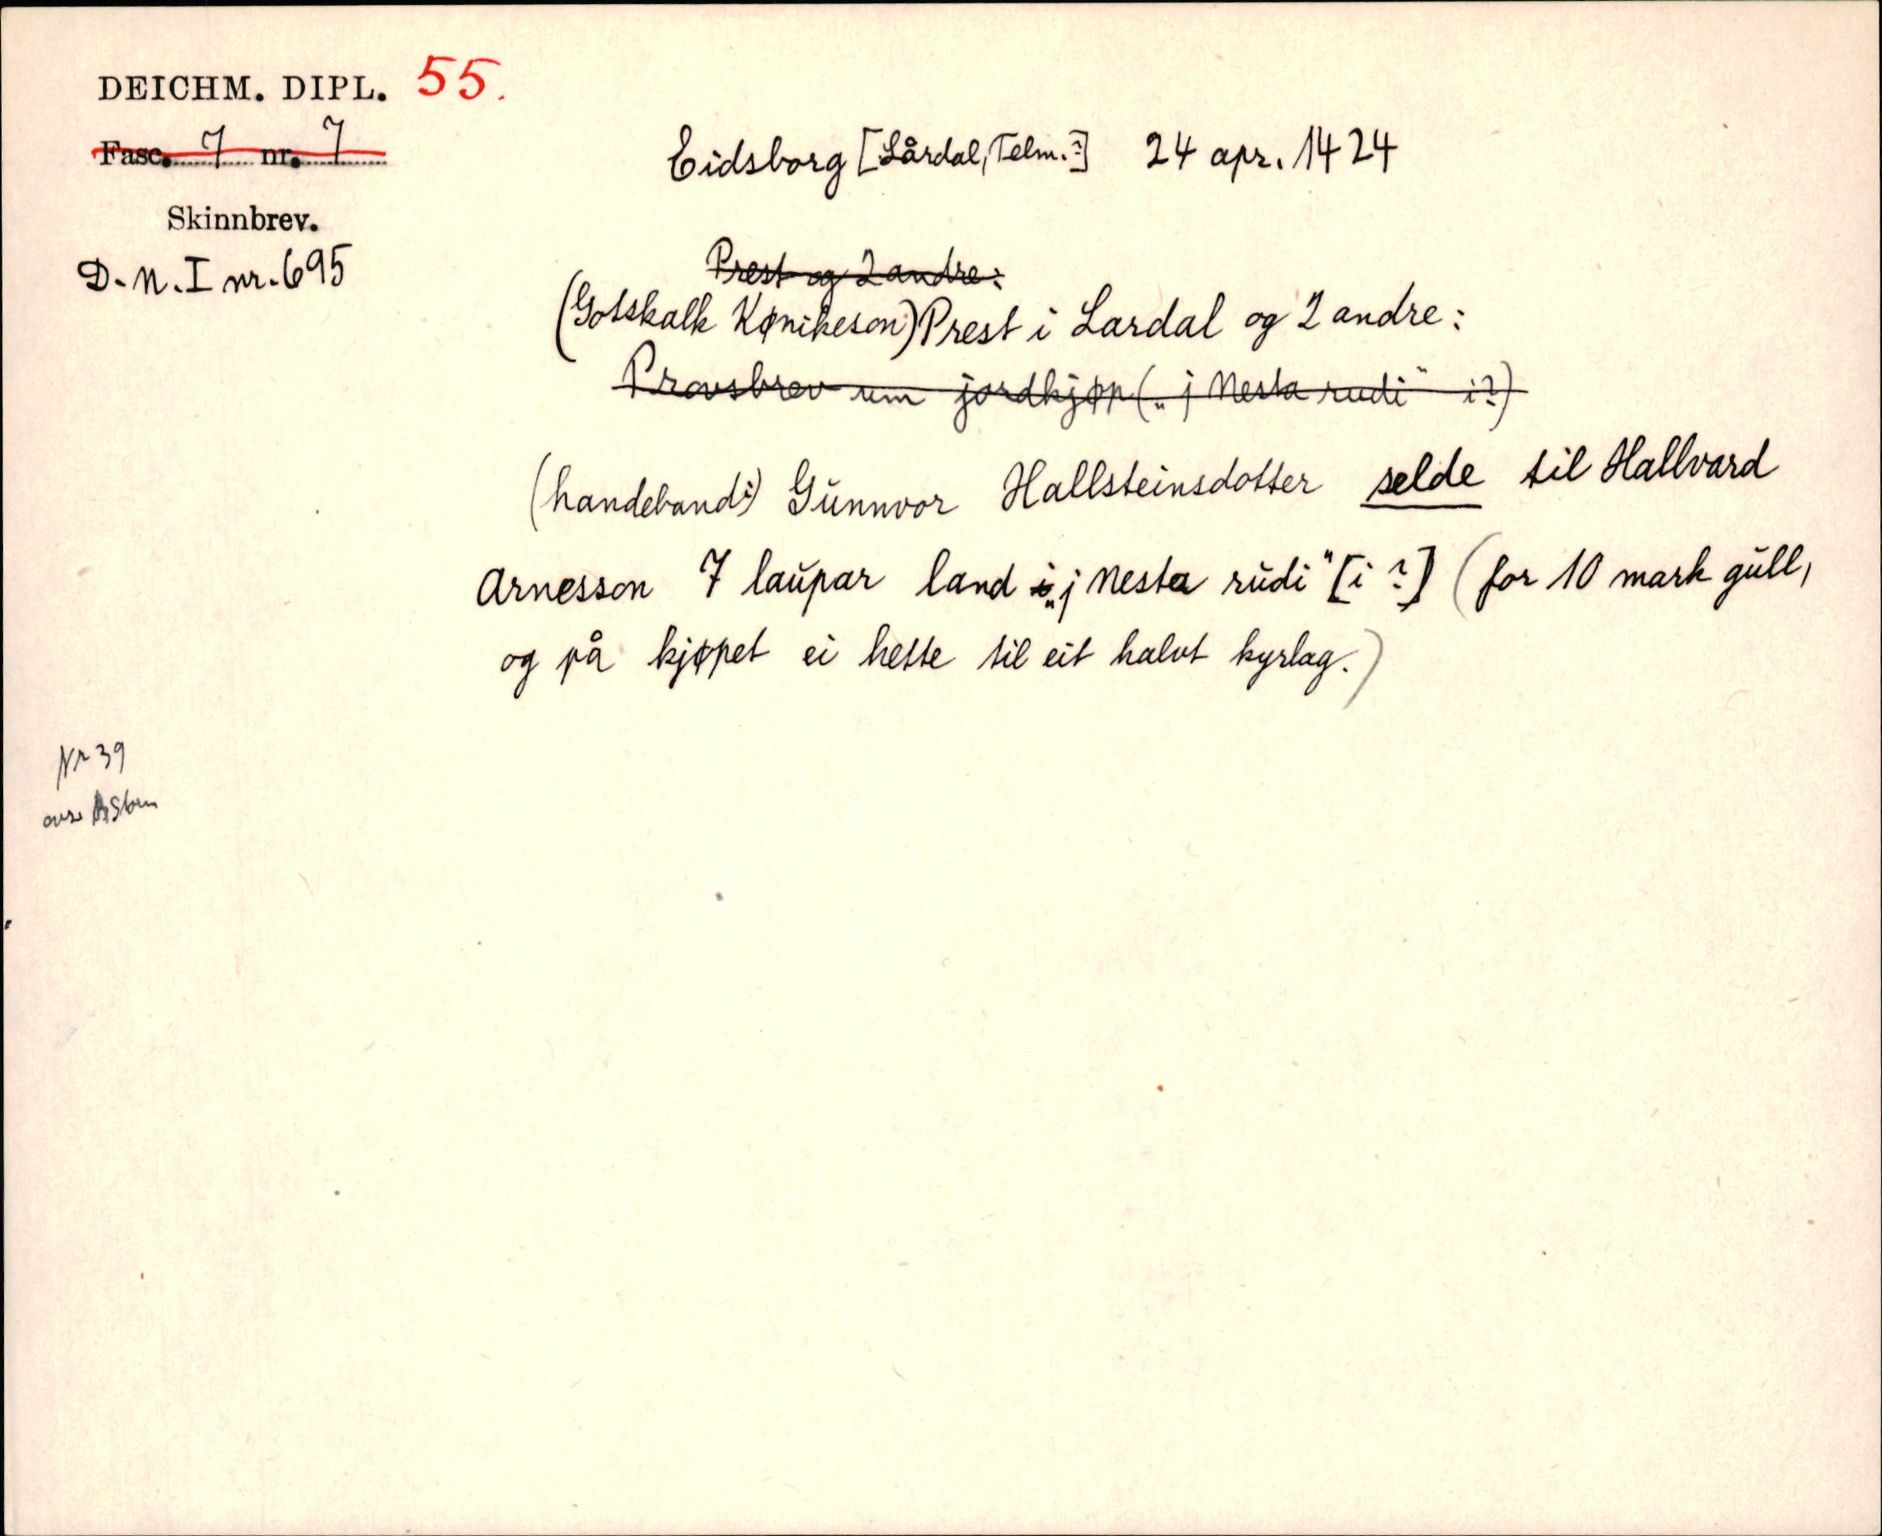 DEICHM. DIPL. 55.
Fasc. 7 nr. 7
Skinnbrev.
D. N. I nr. 695
Eidsborg [Lårdal, Telm.?] 24 apr. 1424
Prest og 2 andre:
(Gotskalk Kønikeson) Prest i Lardal og 2 andre:
Provsbrev um jordkjøp („j Nesta rudi" i?)
(handebandi) Gunnvor Hallsteinsdotter selde til Hallvard
Arnesson 7 laupar land i „j Nesta rudi" [i ?] (for 10 mark gull,
og på kjøpet ei hette til eit halvt kyrlag.)
Nr 39